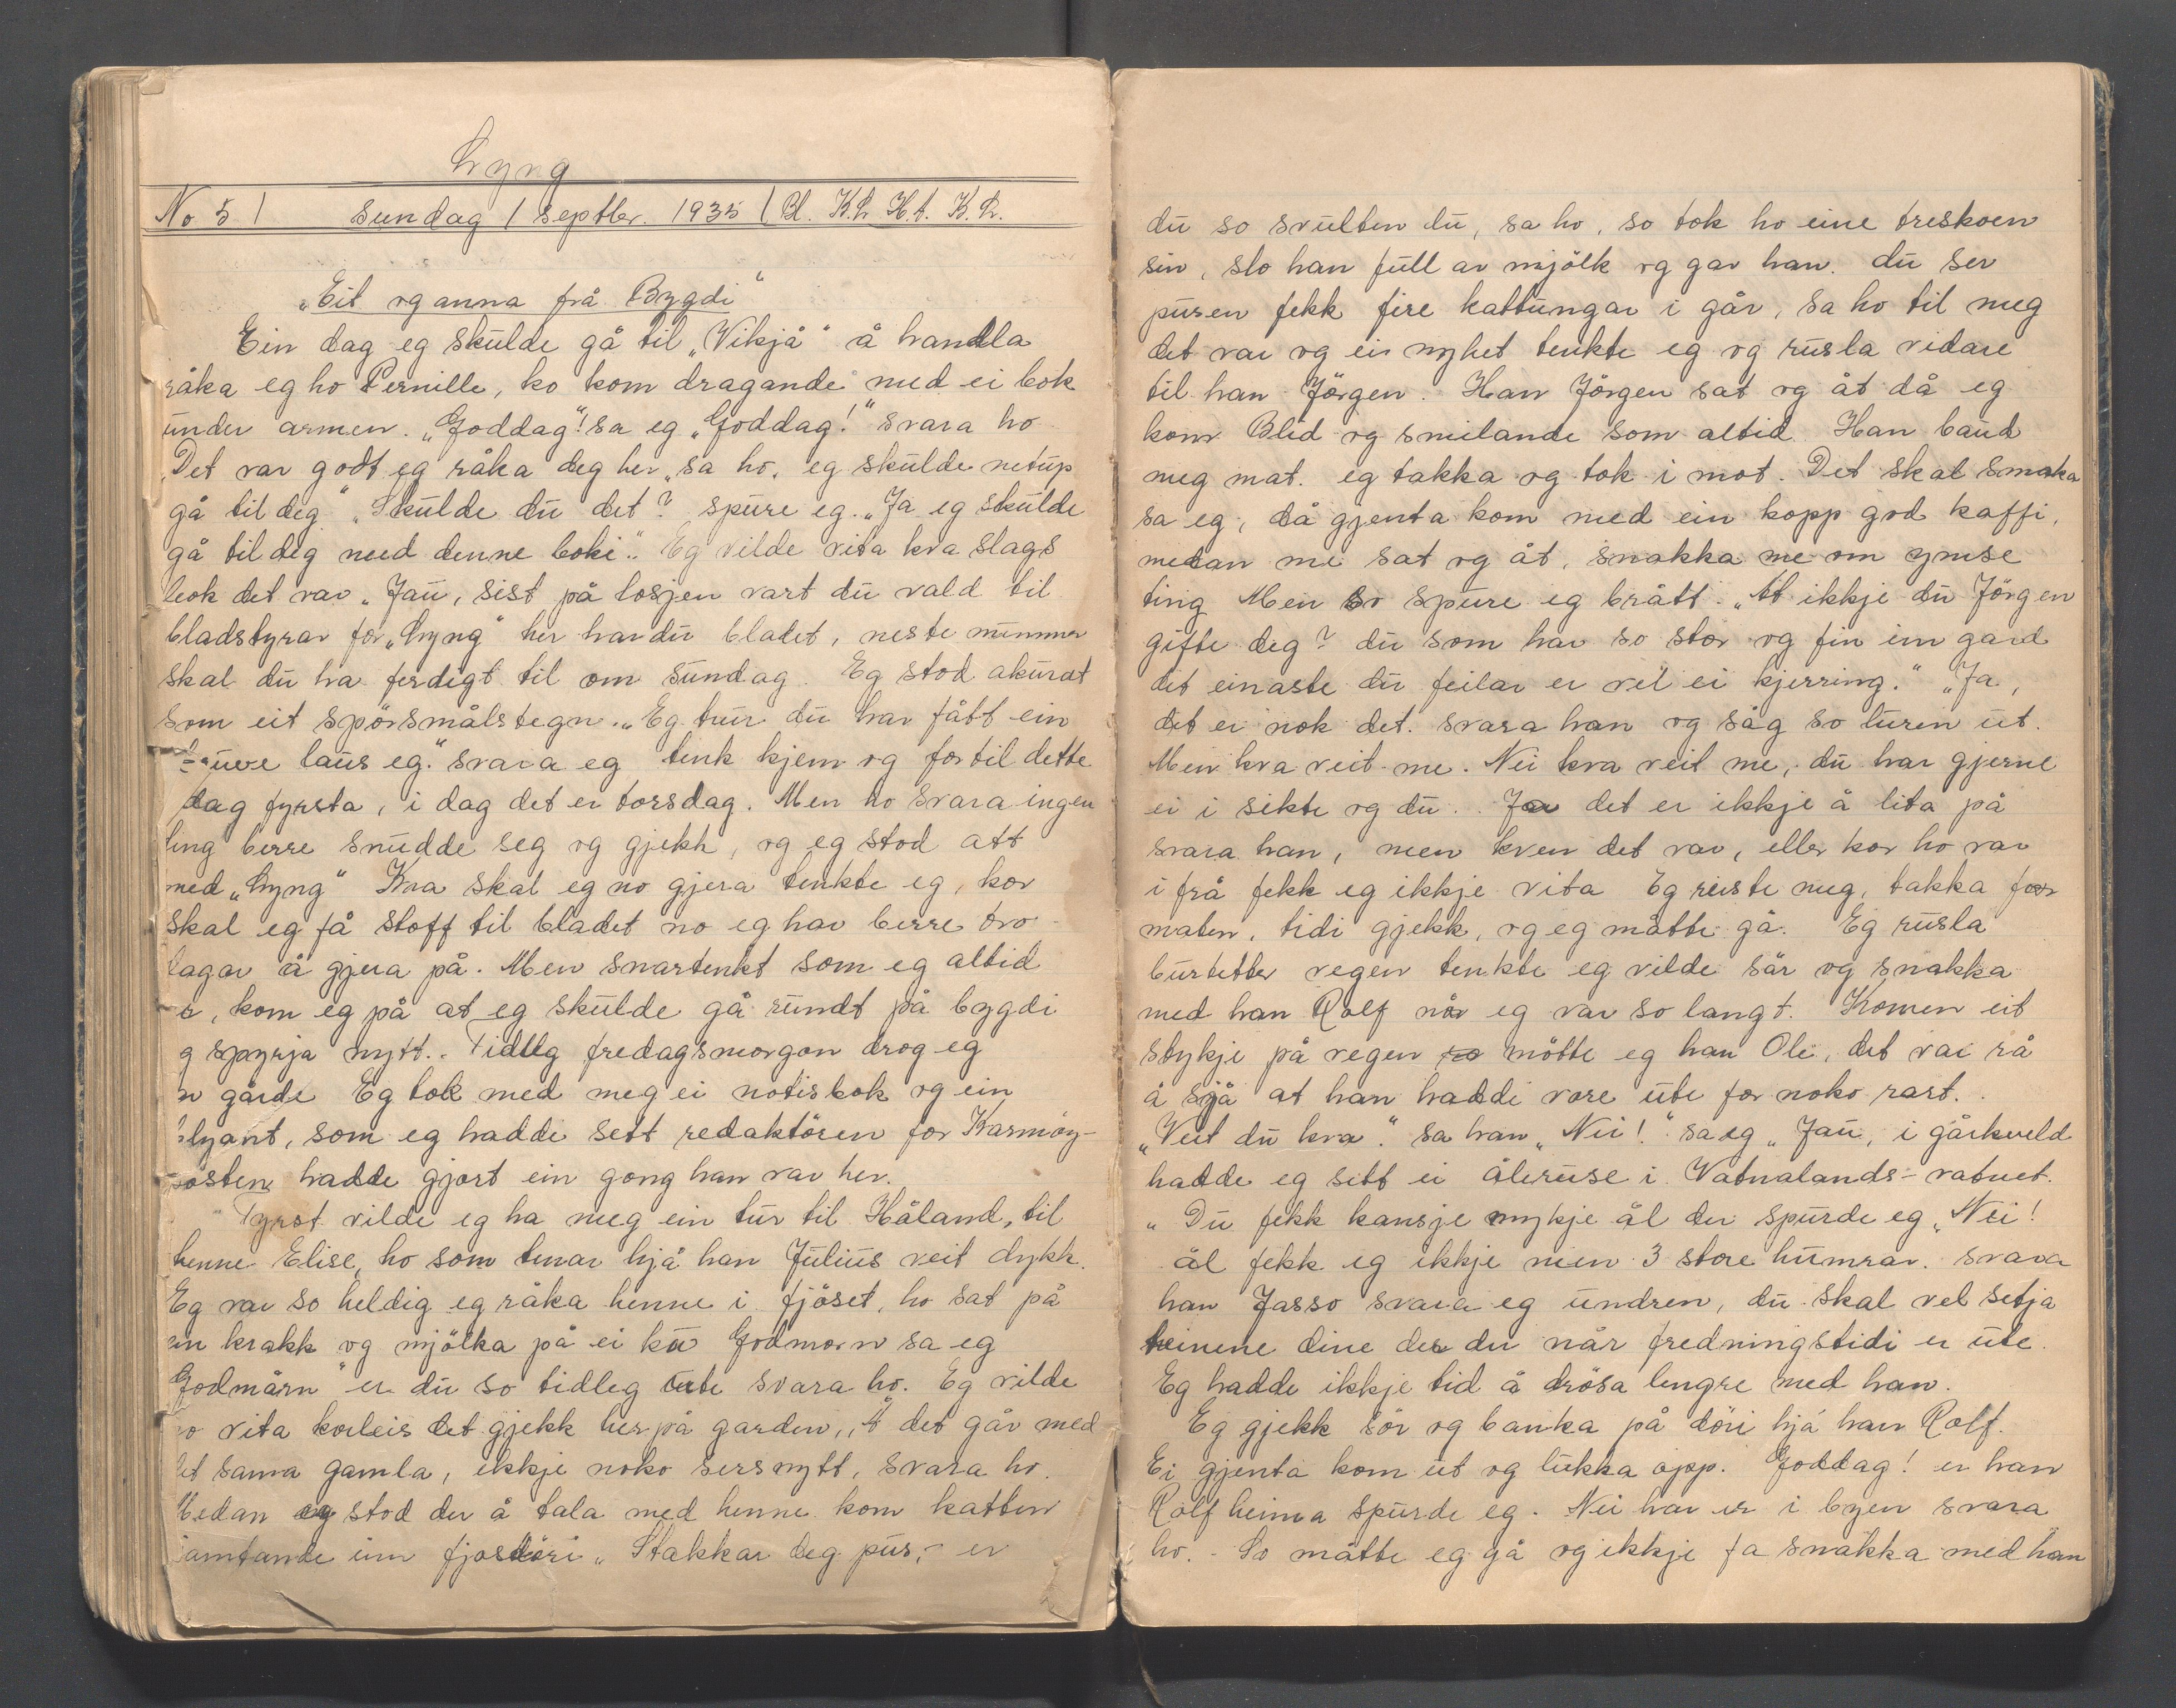 Lyng
No 5 | Sundag 1 septbr. 1935 | Bl. K.L. H.t. K.L.
„Eit og anna frå Bygdi"
Ein dag eg skulde gå til „Vikjå" å handla
råka eg ho Pernille, ho kom dragande med ei bok
under armen. „Goddag"! sa eg „Goddag!" svara ho
Det var godt eg råka deg her „sa ho. eg skulde netup
gå til deg" „Skulde du det? spure eg. „Ja eg skulde
gå til deg med denne boki". Eg vilde vita kva slags
bok det var „Jau, sist på losjen vart du vald til
bladstyrar for „Lyng" her har du bladet, neste nummer
skal du ha ferdigt til om sundag. Eg stod akurat
som eit spörsmålstegn. „Eg trur du har fått ein
skruve laus eg." svara eg tenk kjem og for til dette
dag fyrsta, i dag det er torsdag. Men ho svara ingen
ting berre snudde seg og gjekk, og eg stod att
med „Lyng" Kva skal eg no gjera tenkte eg, kor
skal eg få stoff til bladet no eg har berre tvo
dagar å gjera på. Men snartenkt som eg altid
, kom eg på at eg skulde gå rundt på bygdi
g spyrja nytt. Tidleg fredagsmorgon drog eg
gårde Eg tok med meg ei notisbok og ein
blyant, som eg hadde sett redaktören for Karmöy-
posten hadde gjort ein gong han var her.
Fyrst vilde eg ha meg ein tur til Håland, til
henne Elise, ho som tenar hjå han Julius veit dykk.
Eg var so heldig eg råka henne i fjöset, ho sat på
ein krakk og mjölka på ei ku Godmorn sa eg
Godmårn" er du so tidleg ute svara ho. Eg vilde
no vita korleis det gjekk her på garden, „Å det går med
det sama gamla, ikkje noko sersnytt, svara ho.
Medan eg stod der å tala med henne kom katten
jamtande inn fjosdöri „Stakkar deg pus, er
du so svulten du, sa ho, so tok ho eine treskoen
sin, slo han full av mjölk og gav han. du ser
pusen fekk fire kattungar i går, sa ho til meg
det var og ein nyhet tenkte eg og rusla vidare
til han Jörgen. Han Jörgen sat og åt då eg
kom Blid og smilande som altid Han baud
meg mat. eg takka og tok i mot. Det skal smaka
sa eg, då gjenta kom med ein kopp god kaffi,
medan me sat og åt, snakka me om ymse
ting Men so spure eg brått. „At ikkje du Jörgen
gifte deg? du som har so stor og fin inn gard
det einaste du feilar er vel ei kjerring." „Ja,
det er nok det. svara han og såg so luren ut.
Men kva veit me. Nei kva veit me, du har gjerne
ei i sikte og du. Jau det er ikkje å lita på
svara han, men kven det var, eller kor ho var
i frå fekk eg ikkje vita Eg reiste meg, takka for
maten, tidi gjekk, og eg måtte gå. Eg rusla
burtetter vegen tenkte eg vilde sör og snakka
med han Rolf når eg var so langt. Komen eit
stykje på vegen so mötte eg han Ole, det var rå
å sjå at han hadde vore ute for noko rart.
„Veit du kva." sa han „Nei!" sa eg „Jau, i gårkveld
hadde eg sett ei åleruse i Vatnalands-vatnet.
„Du fekk kansje mykje ål der spurde eg „Nei!
ål fekk eg ikkje men 3 store humrar. svara
han Jasso svara eg undren, du skal vel setja
teinene dine der du når fredningstidi er ute.
Eg hadde ikkje tid å drösa lengre med han.
Eg gjekk sör og banka på döri hjå han Rolf.
Ei gjenta kom ut og lukka opp. Goddag! er han
Rolf heima spurde eg. Nei han er i byen svara
ho. - So måtte eg gå og ikkje fa snakka med han